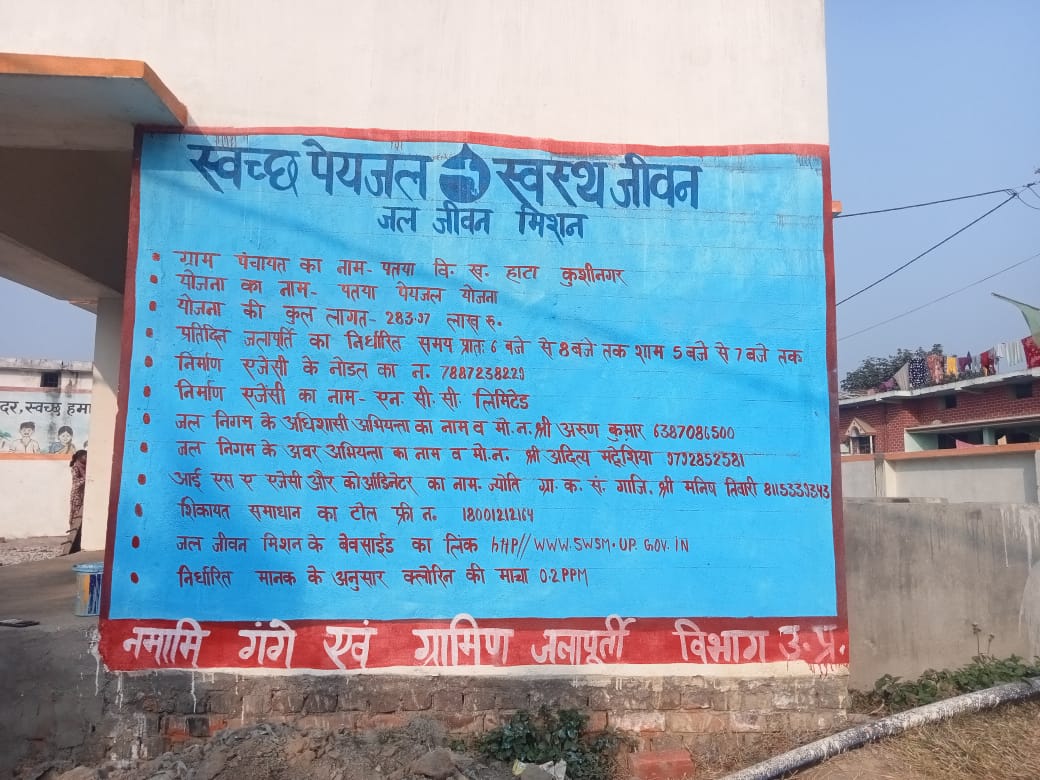 स्वच्छ पेयजल स्वस्थ जीवन
जल जीवन मिशन
ग्राम पंचायत का नाम- पतया वि. ख. हाटा कुशीनगर
योजना का नाम- पतया पेयजल योजना
योजना की कुल लागत- 283.97 लाख रु.
प्रतिदिन जलापूर्ति का निर्धारित समय प्रातः 6 बजे से 8 बजे तक शाम 5 बजे से 7 बजे तक
निर्माण एजेंसी के नोडल का न. 7887238229
निर्माण एजेंसी का नाम- एन सी. सी. लिमिटेड
जल निगम के अधिशासी अभियन्ता का नाम व मो. न. श्री अरुण कुमार 6387086500
जल निगम के अवर अभियन्ता का नाम व मो.न. श्री अदित्य मद्देशिया 9792852581
आई एस ए एजेंसी और कोआर्डिनेटर का नाम- ज्योति ग्रा. क. सं. गाजि. श्री मनिष तिवारी 8115339343
शिकायत समाधान का टोल फ्री न. 18001212164
जल जीवन मिशन के बेवसाईड का लिंक http//WWW.SWSM.UP.GOV.IN
निर्धारित मानक के अनुसार क्लोरिन की मात्रा 0.2 PPM
नमामि गंगे एवं ग्रामिण जलापूर्ती विभाग उ. प्र.
दर, स्वच्छ हमा